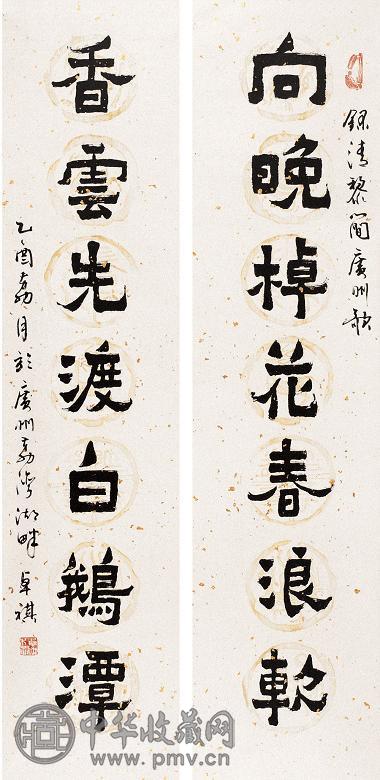 錄清黎簡廣州歌
向晚棹花春浪軟
香雲先渡白鵝潭
乙酉荔月於廣州荔灣湖畔 卓祺
中华收藏网
www.pmv.cn